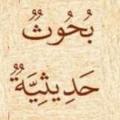 بُحُوثٌ
حَدِيثِيَّةٌ